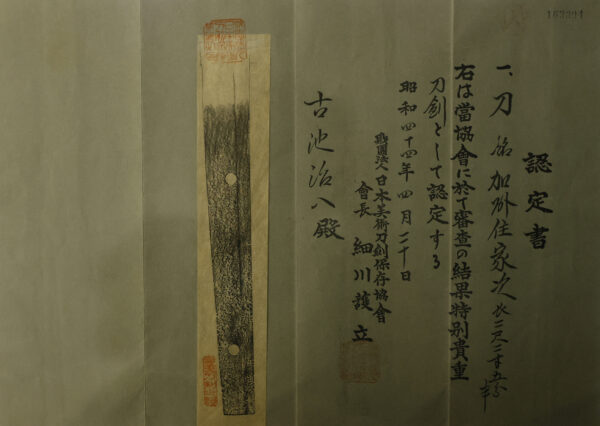 163294
認定書
一、刀 銘 加州住家次 長二尺二寸五分半
右は當協會に於て審査の結果特別貴重
刀劍として認定する
昭和四十四年四月二十日
財團法人日本美術刀劍保存協會
會長 細川護立
古池治八殿